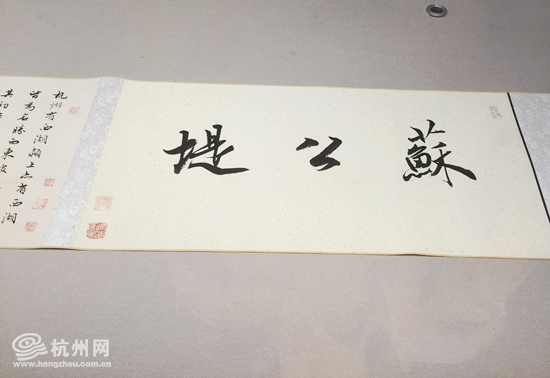 蘇公堤
杭州有西湖潁上亦有西湖
皆為名勝而東坡
其初
杭州网
www.hangzhou.com.cn